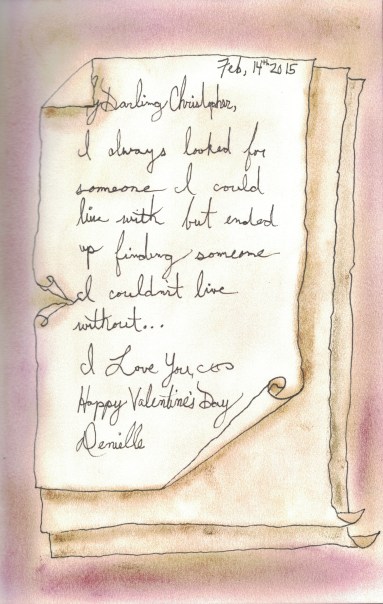 Feb, 14th 2015
My Darling Christopher,
I always looked for
someone I could
live with but ended
up finding someone
I couldn't live
without...
I Love You,
Happy Valentine's Day
Denielle